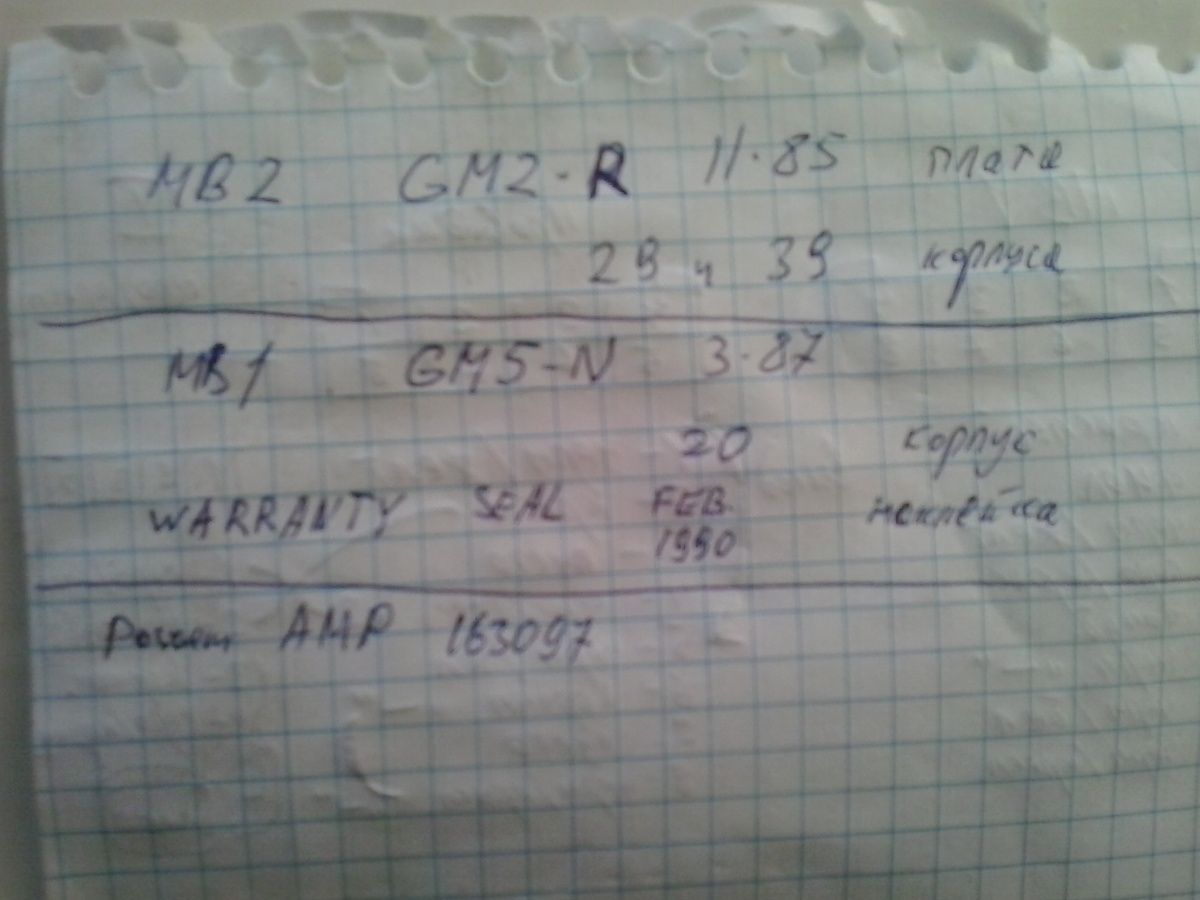 MB2 GM2-R 11·85 плата
29 и 39 корпуса
MB1 GM5-N 3·87
20 корпус
WARRANTY SEAL FEB 1990 наклейка
AMP 163097